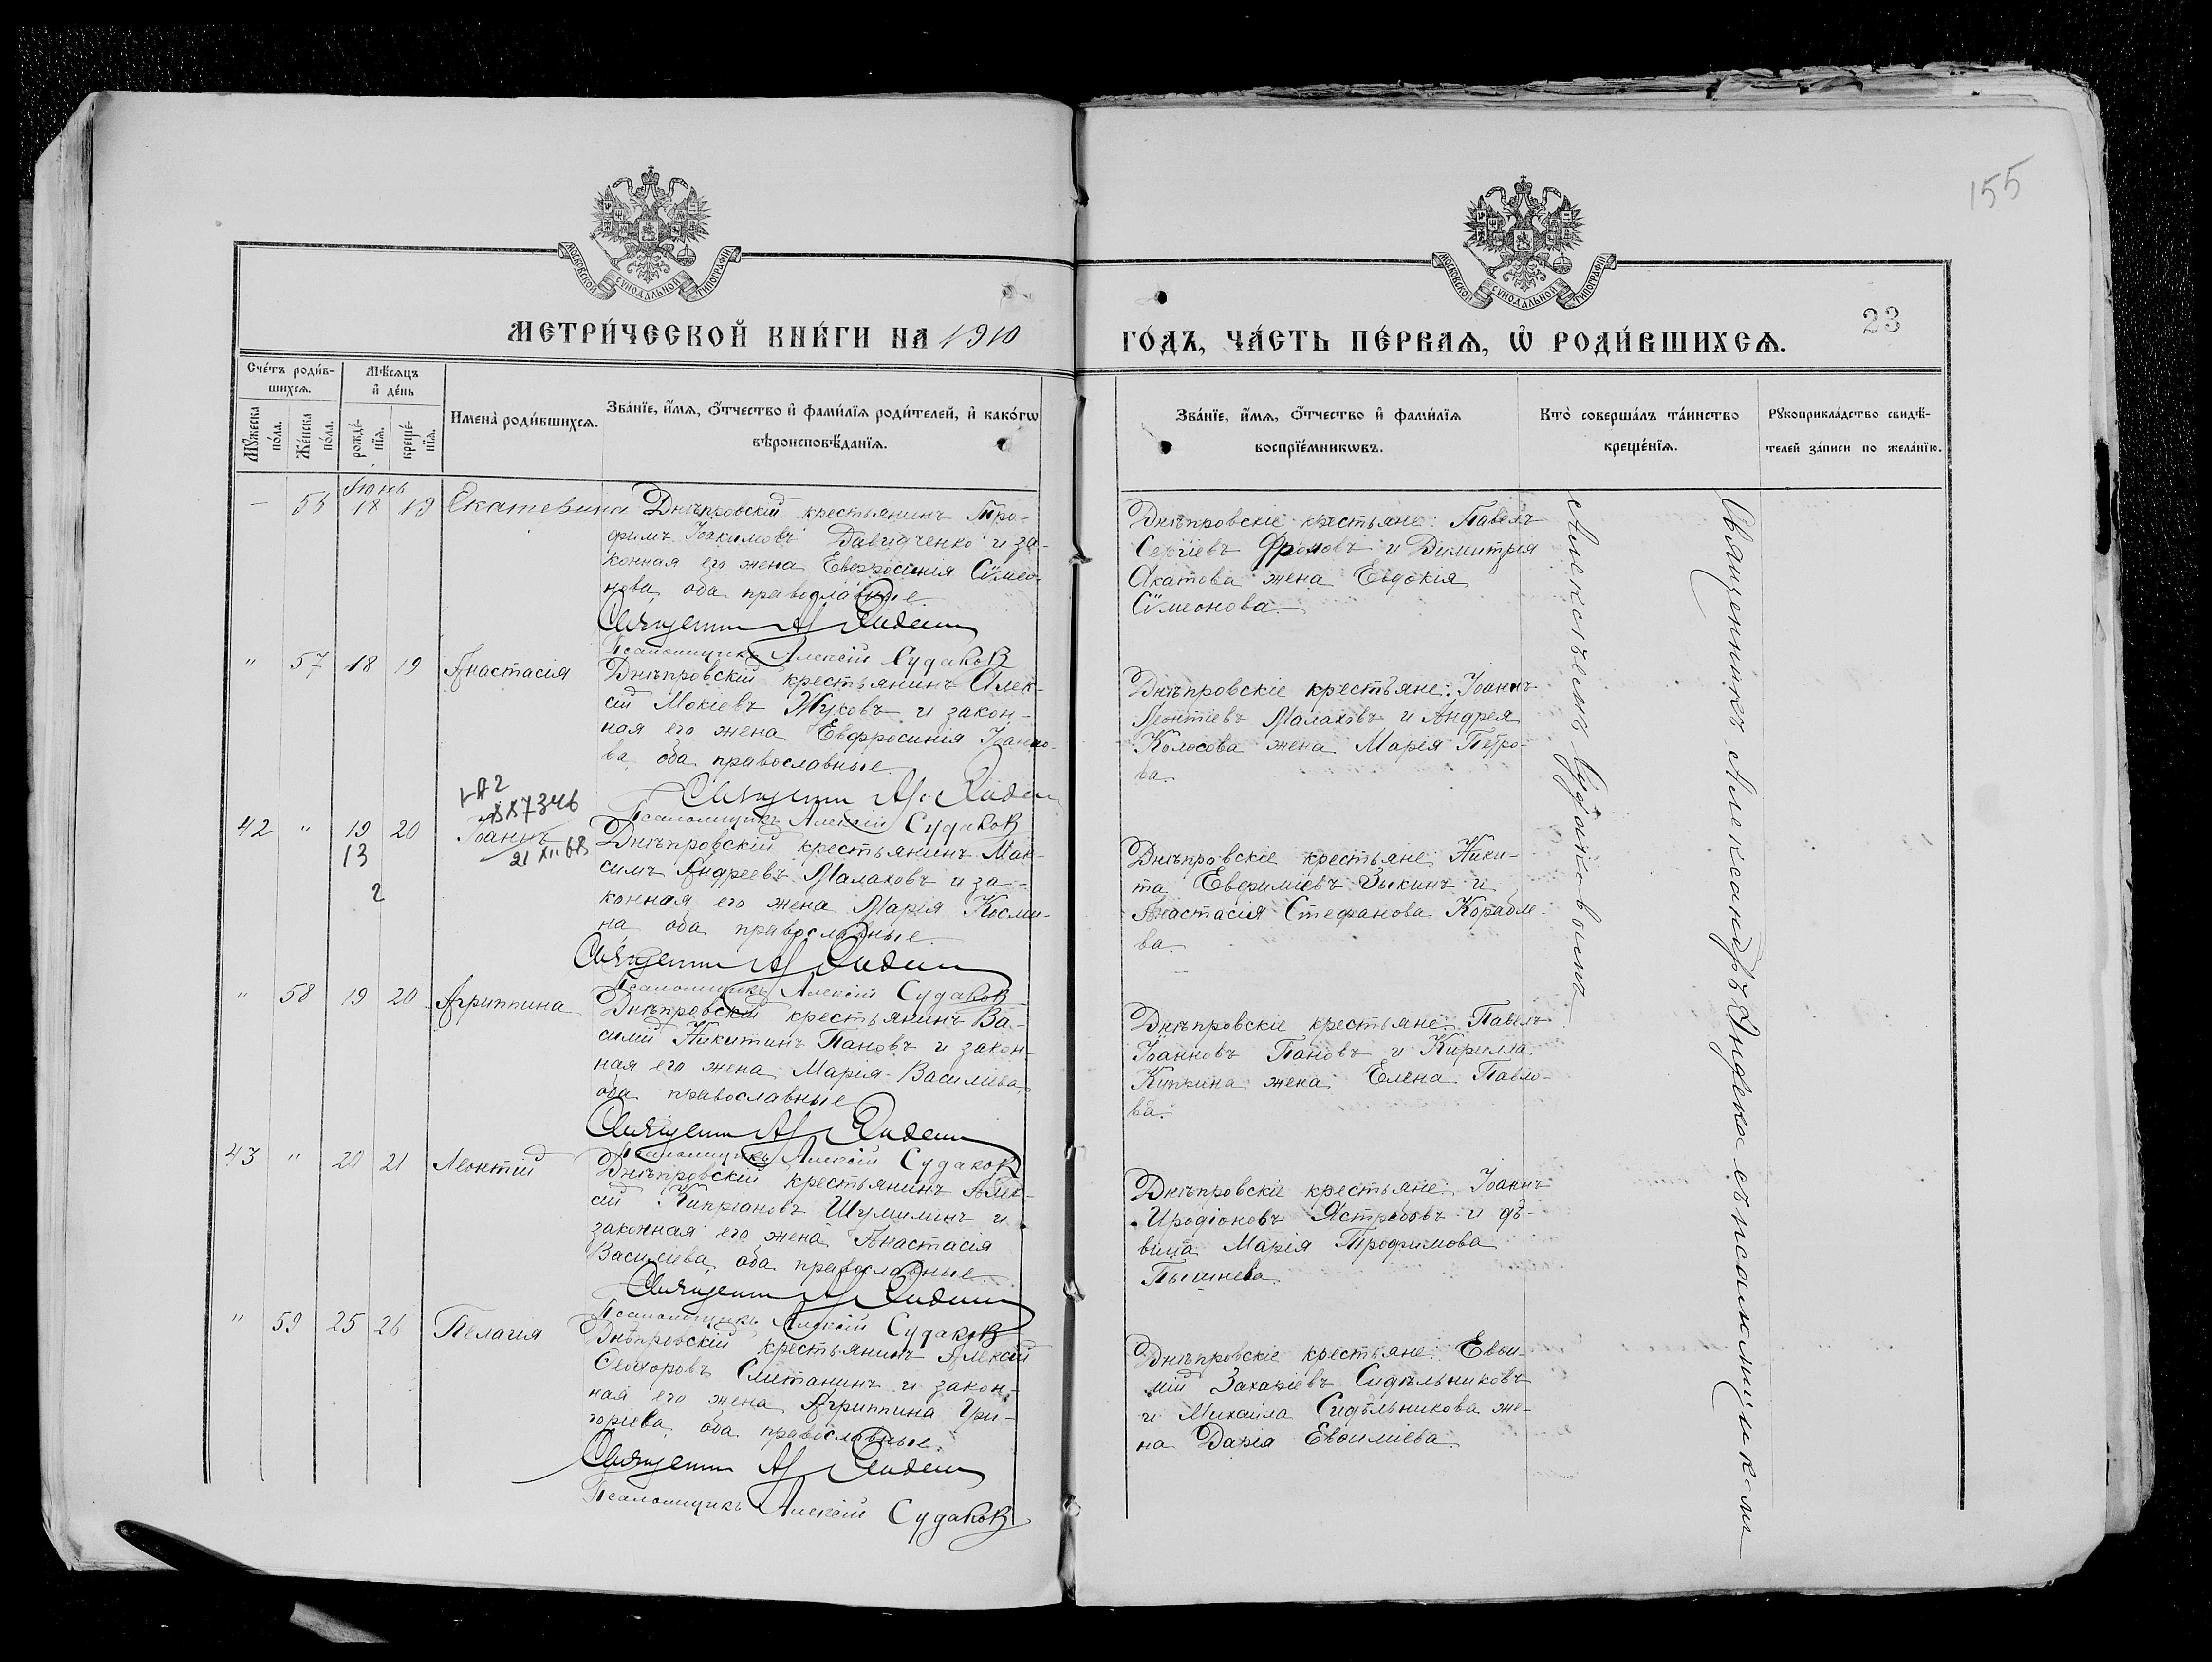 155
МОСКОВСКОЙ СѴНОДАЛЬНОЙ ТИПОГРАФІИ
МОСКОВСКОЙ СѴНОДАЛЬНОЙ ТИПОГРАФІИ
МЕТРИ́ЧЕСКОЙ КНИ́ГИ НА 1910
ГО́ДЪ, ЧА́СТЬ ПЕ́РВАѦ, Ѡ҆ РОДИ́ВШИХСѦ.
23
Сче́тъ роди́в-
шихсѧ.
Мꙋ́жеска
по́ла.
Же́нска
по́ла.
Мѣ́сѧцъ
и҆ де́нь
рожде́-
нїѧ.
креще́-
нїѧ.
Имена̀ роди́вшихсѧ.
Зва́нїе, и҆́мѧ, ѻ҆́тчество и҆ фами́лїѧ роди́телей, и҆ како́гѡ
вѣроисповѣ́данїѧ.
Зва́нїе, и҆́мѧ, ѻ҆́тчество и҆ фами́лїѧ
воспрїе́мникѡвъ.
Кто̀ соверша́лъ та́инство
креще́нїѧ.
Рꙋкоприкла́дство свидѣ́-
телей за́писи по жела́нїю.
Іюнь
— 18 19 Екатерина Днѣпровскій крестьянинъ Тро-
фимъ Іоакимовъ Давидченко и за-
конная его жена Евфросинія Сѵмео-
нова, оба православные.
Священн А
Псаломщикъ Алексій Судаков
Днѣпровскіе крестьяне: Павелъ
Сергіевъ Фроловъ и Димитрія
Акатова жена Евдокія
Сѵмеонова.
" 57 18 19 Анастасія Днѣпровскій крестьянинъ Алек-
сій Мокіевъ Жуковъ и закон-
ная его жена Евфросинія Іоанно-
ва, оба православные.
Священн А
Псаломщикъ Алексій Судаков
Днѣпровскіе крестьяне: Іоаннъ
Леонтіевъ Малаховъ и Андрея
Колосова жена Марія Петро-
ва.
887346
42 " 19 20 Іоаннъ Днѣпровскій крестьянинъ Мак-
13
2
21 XII 68
симъ Андреевъ Малаховъ и за-
конная его жена Марія Косми-
на, оба православные.
Священн А
Псаломщикъ Алексій Судаков
Днѣпровскіе крестьяне: Ники-
та Евфиміевъ Зыкинъ и
Анастасія Стефанова Корабле-
ва.
" 58 19 20 Агриппина Днѣпровскій крестьянинъ Ва-
силій Никитинъ Пановъ и закон-
ная его жена Марія Василіева,
оба православные
Священн А
Псаломщикъ Алексій Судаков
Днѣпровскіе крестьяне: Павелъ
Іоанновъ Пановъ и Кирилла
жена Елена Павло-
ва.
43 " 20 21 Леонтій Днѣпровскій крестьянинъ Алек-
сій Кипріановъ Шумилинъ и
законная его жена Анастасія
Василіева, оба православные.
Священн А
Псаломщикъ Алексій Судаков
Днѣпровскіе крестьяне: Іоаннъ
Иродіоновъ Ястребовъ и дѣ-
вица Марія Трофимова
" 59 25 26 Пелагія Днѣпровскій крестьянинъ Алексій
Ѳеодоровъ Сметанинъ и закон-
ная его жена Агриппина Гри-
горіева, оба православные.
Священн А
Псаломщикъ Алексій Судаков
Днѣпровскіе крестьяне: Евѳи-
мій Захаріевъ Сидѣльниковъ
и Михаила Сидѣльникова же-
на Дарія Евѳиміева.
Священникъ Александръ съ псаломщикомъ
Алексѣемъ Судаковымъ